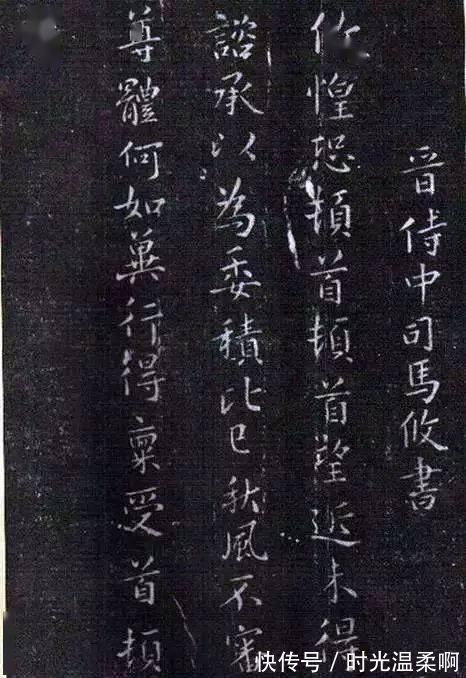 晋侍中司馬攸書
攸惶恐頓首頓首望近未得
諮承以為委積比已秋風不審
尊體何如冀行得稟受首頓
快传号／时光温柔啊